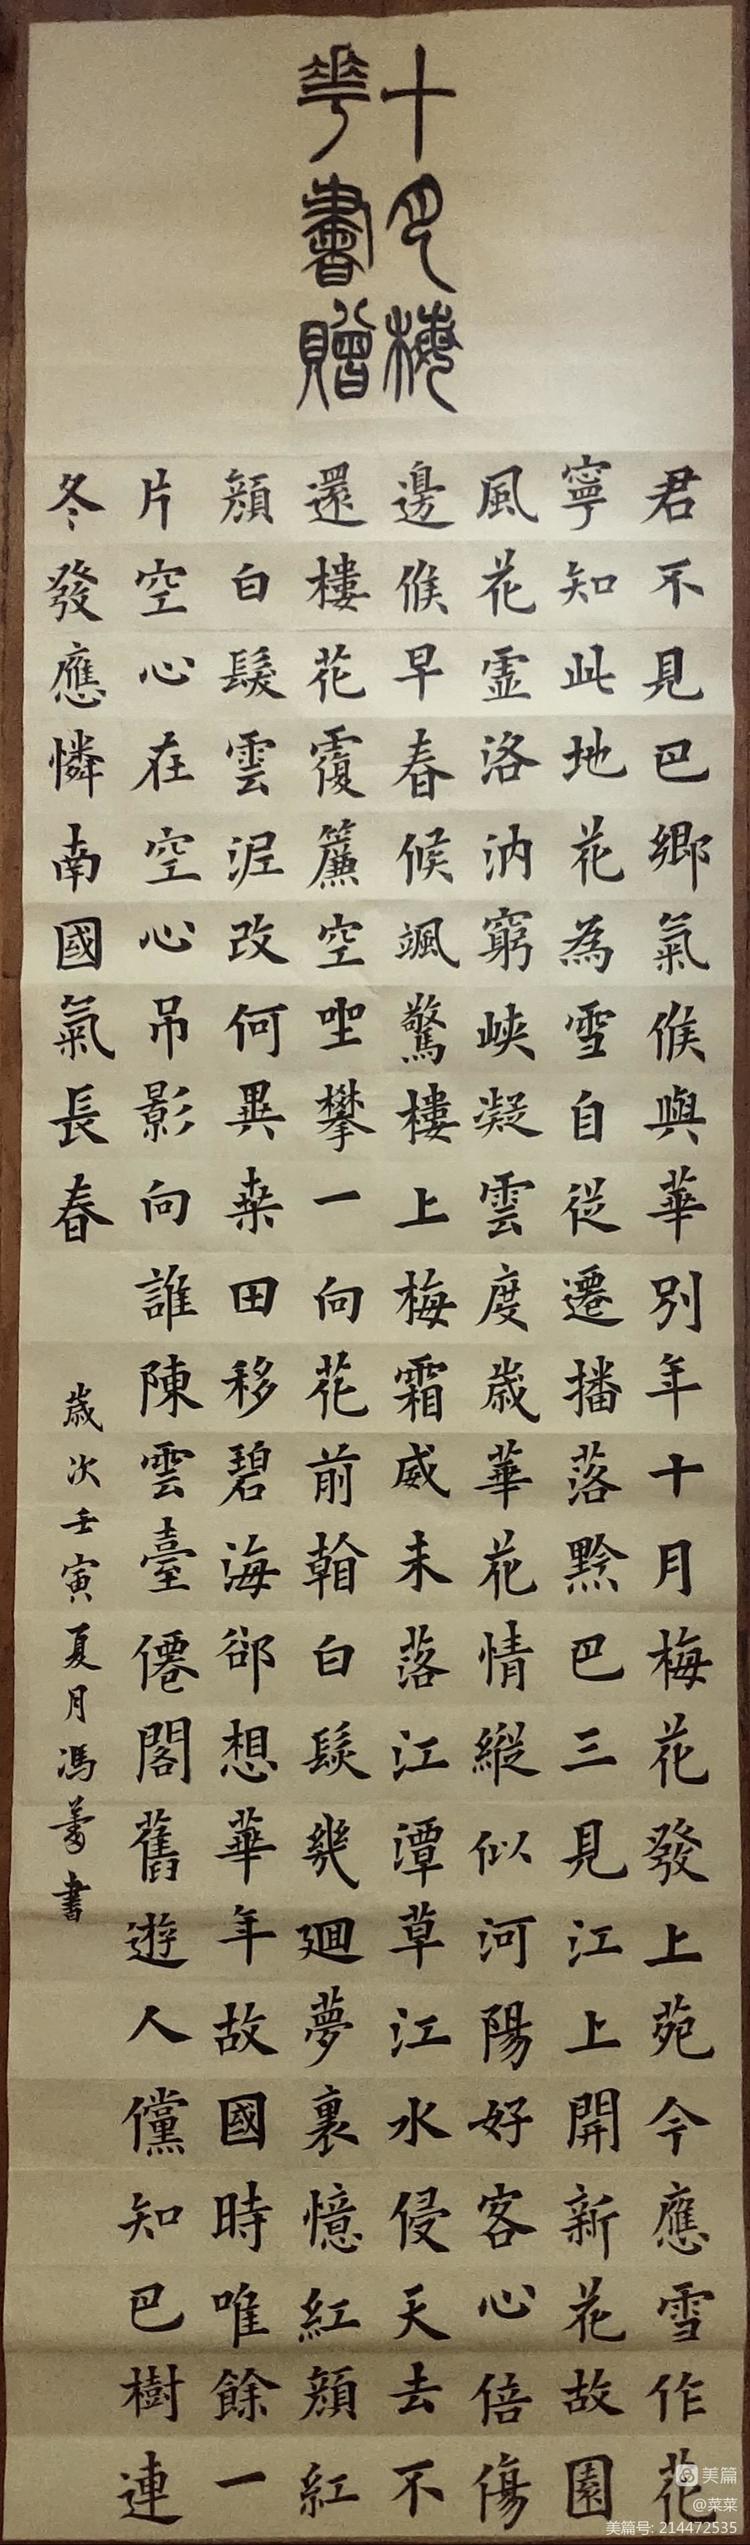 十月梅
華書贈
君不見巴鄉氣候與華別年十月梅花發上苑今應雪作花
寧知此地花為雪自從遷播落黔巴三見江上開新花故園
風花虛洛汭窮峽凝雲度歲華花情縱似河陽好客心倍傷
邊候早春候颯驚樓上梅霜威未落江潭草江水侵天去不
還樓花覆簾空坐攀一向花前看白髮幾迴夢裏憶紅顏紅
顏白髮雲泥改何異桒田移碧海卻想華年故國時唯餘一
片空心在空心吊影向誰陳雲臺僊閣舊遊人儻知巴樹連
冬發應憐南國氣長春
歲次壬寅夏月馮書
美篇
@菜菜
美篇号: 214472535